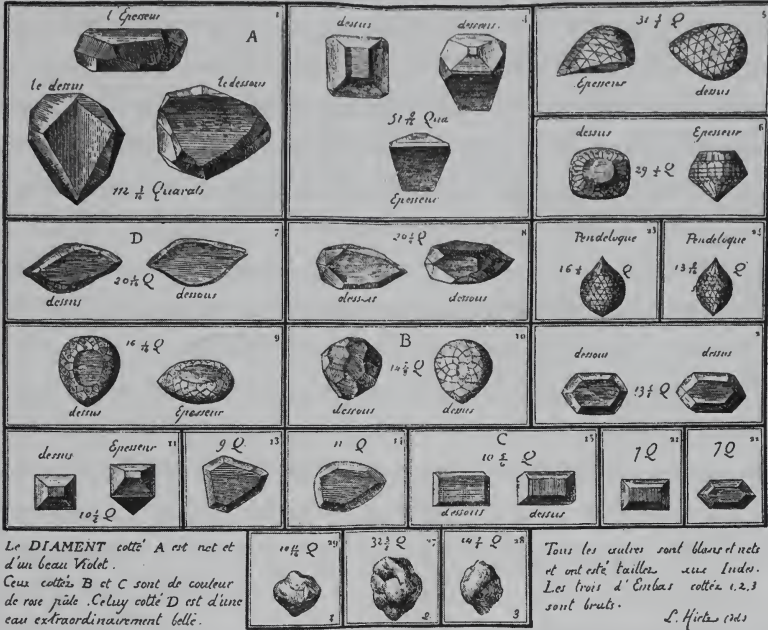 l'Epesseur
A
1
le dessus
le dessous
112 3/16 Quarats
4
dessus
dessous
Qua
Epesseur
5
Q
Epesseur
dessus
6
dessus
Epesseur
29 Q
D
7
Q
dessus
dessous
8
Q
dessus
dessous
23
Pendeloque
16 Q
25
Pendeloque
13 Q
9
16 Q
dessus
Epesseur
B
10
14 Q
dessous
dessus
dessous
dessus
13 Q
11
dessus
Epesseur
10 Q
13
9 Q
14
11 Q
C
15
10 Q
dessous
dessus
7 Q
7 Q
Le DIAMENT cotté A est net et
d'un beau Violet.
Ceux cottéz B et C sont de couleur
de rose pâle. Celuy cotté D est d'une
eau extraordinairement belle.
10 Q
1
32 Q
27
2
14 Q
28
3
Tous les autres sont blans et nets
et ont esté tailles aux Indes.
Les trois d'Embas cottéz 1, 2, 3
sont bruts.
L. Hirtz